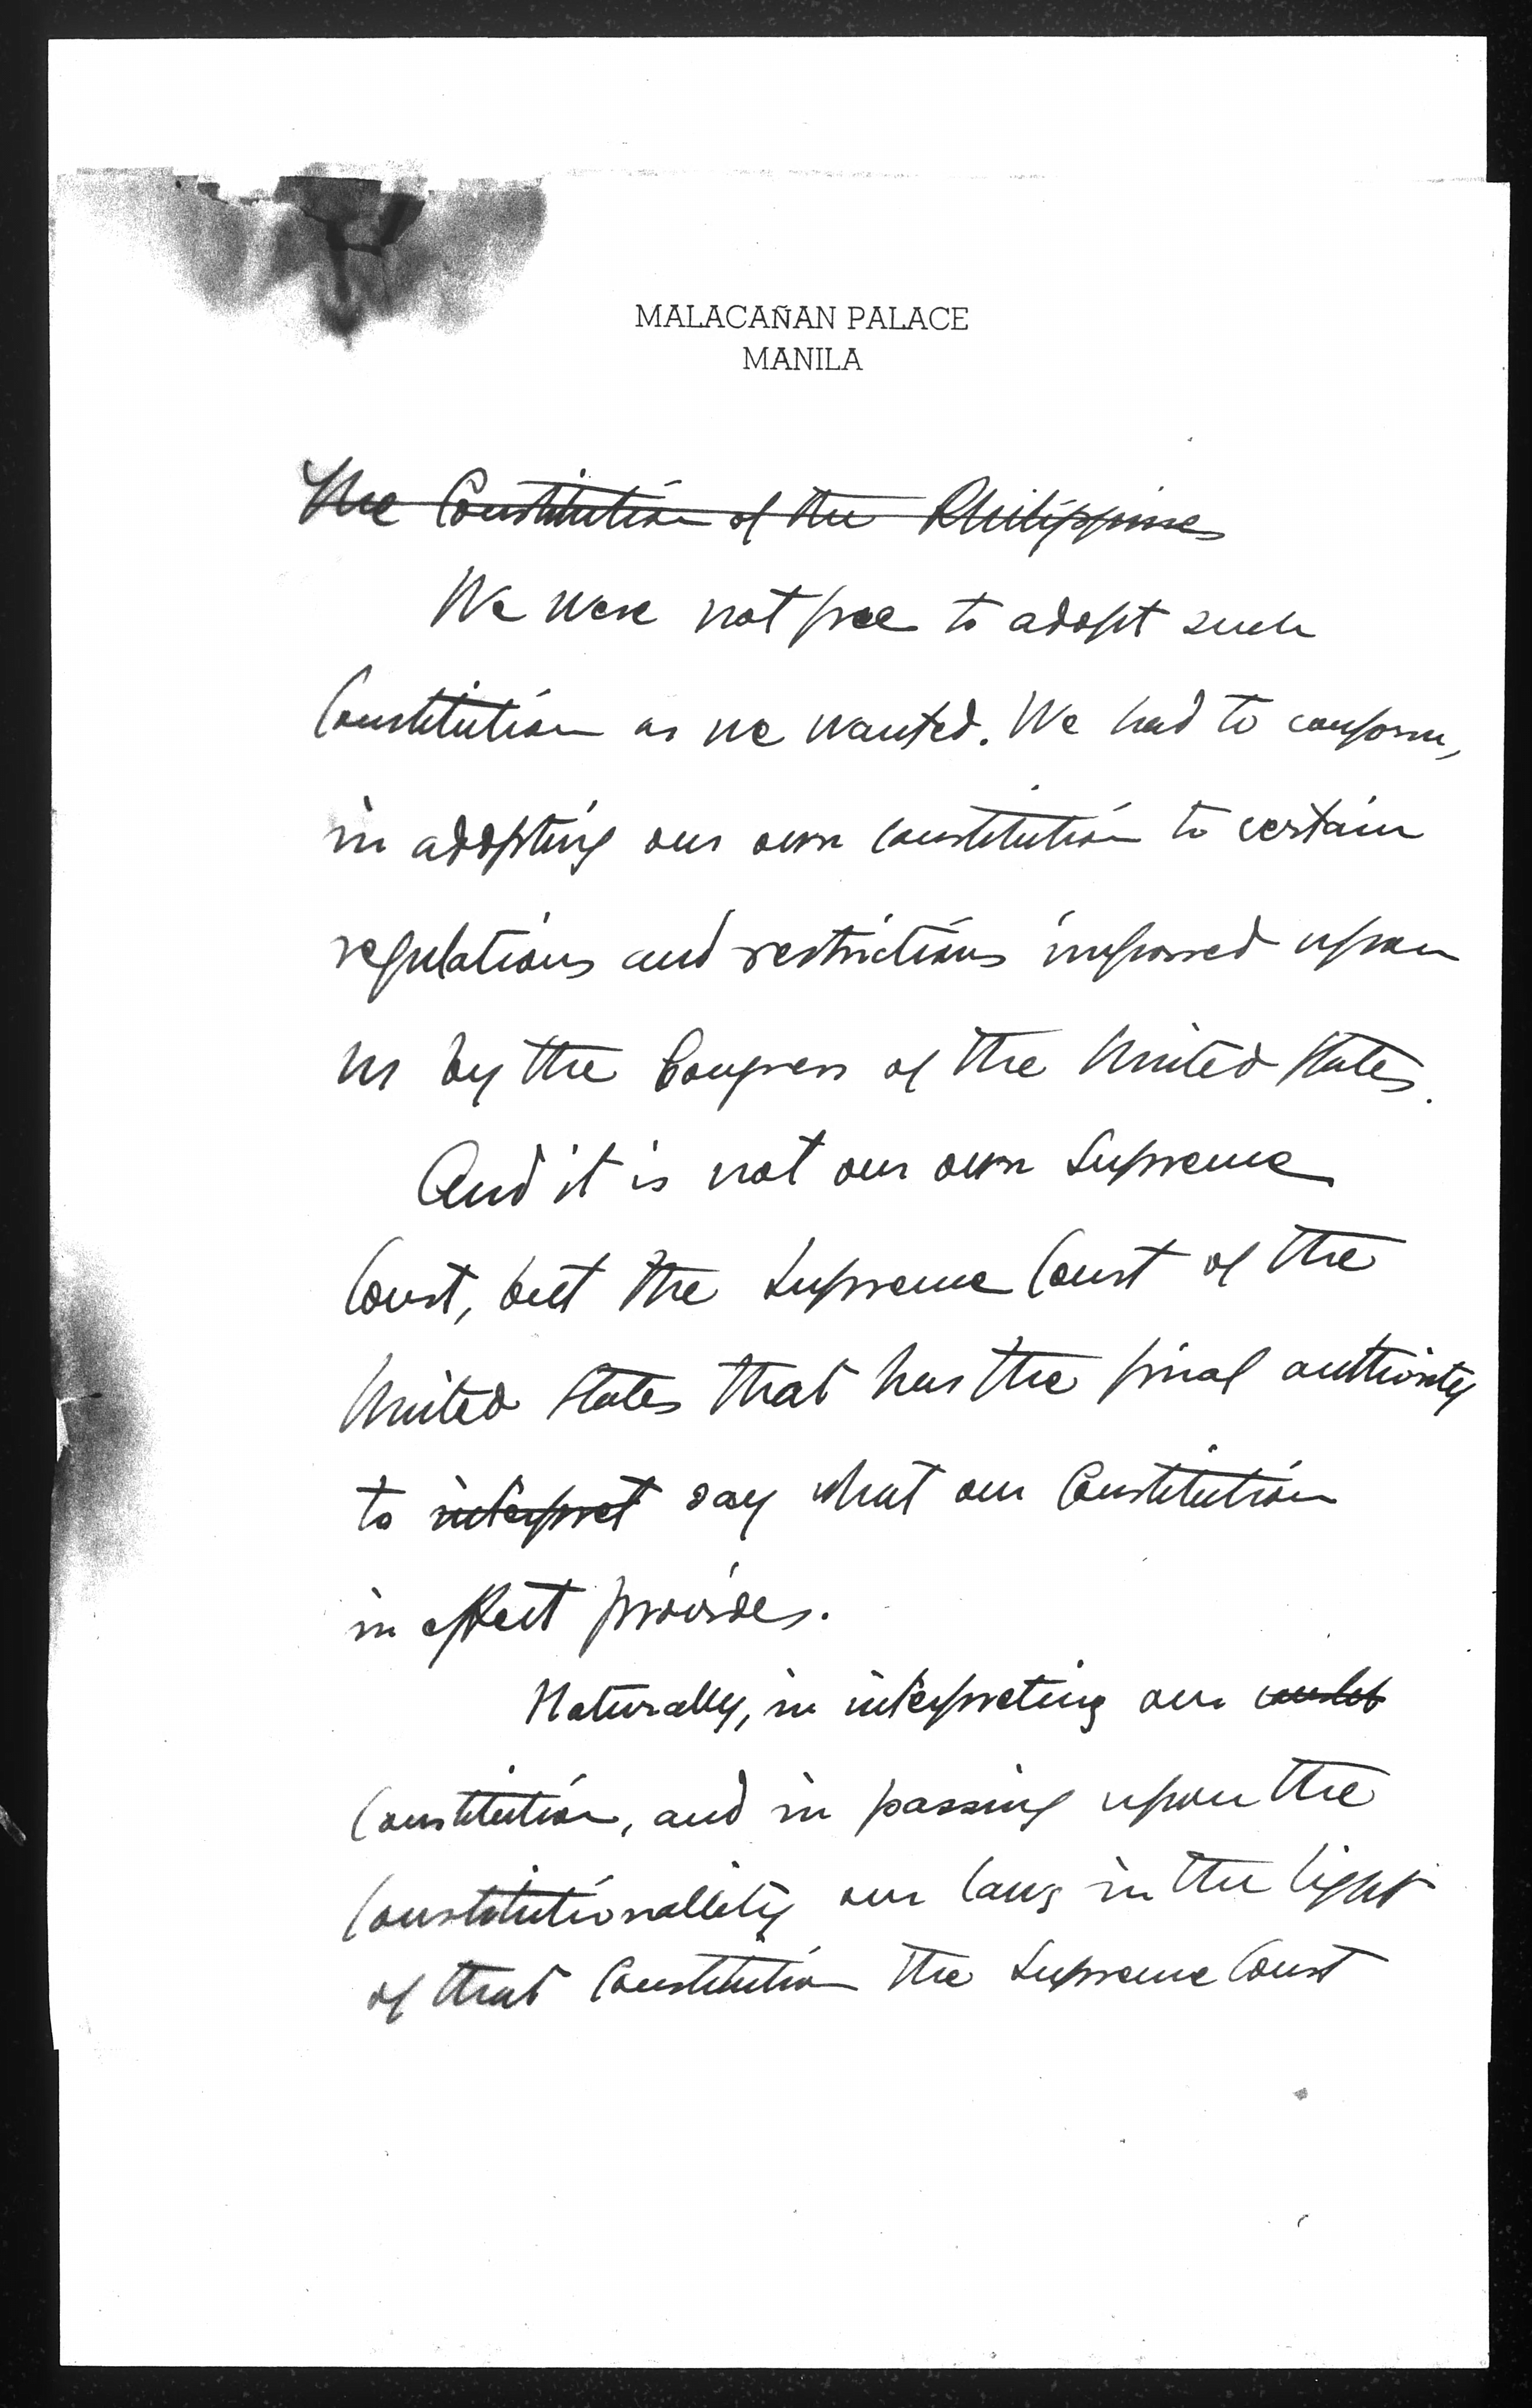 MALACAÑAN PALACE
MANILA
The Constitution of the Philippines
We were not free to adopt such
Constitution as we wanted. We had to conform,
in adopting our own constitution to certain
regulations and restrictions imposed upon
us by the Congress of the United States.
And it is not our own Supreme
Court, but the Supreme Court of the
United States that has the final authority
to interpret say what our Constitution
in effect provides.
Naturally, in interpreting our
Constitution, and in passing upon the
Constitutionallity our laws in the light
of that Constitution the Supreme Court